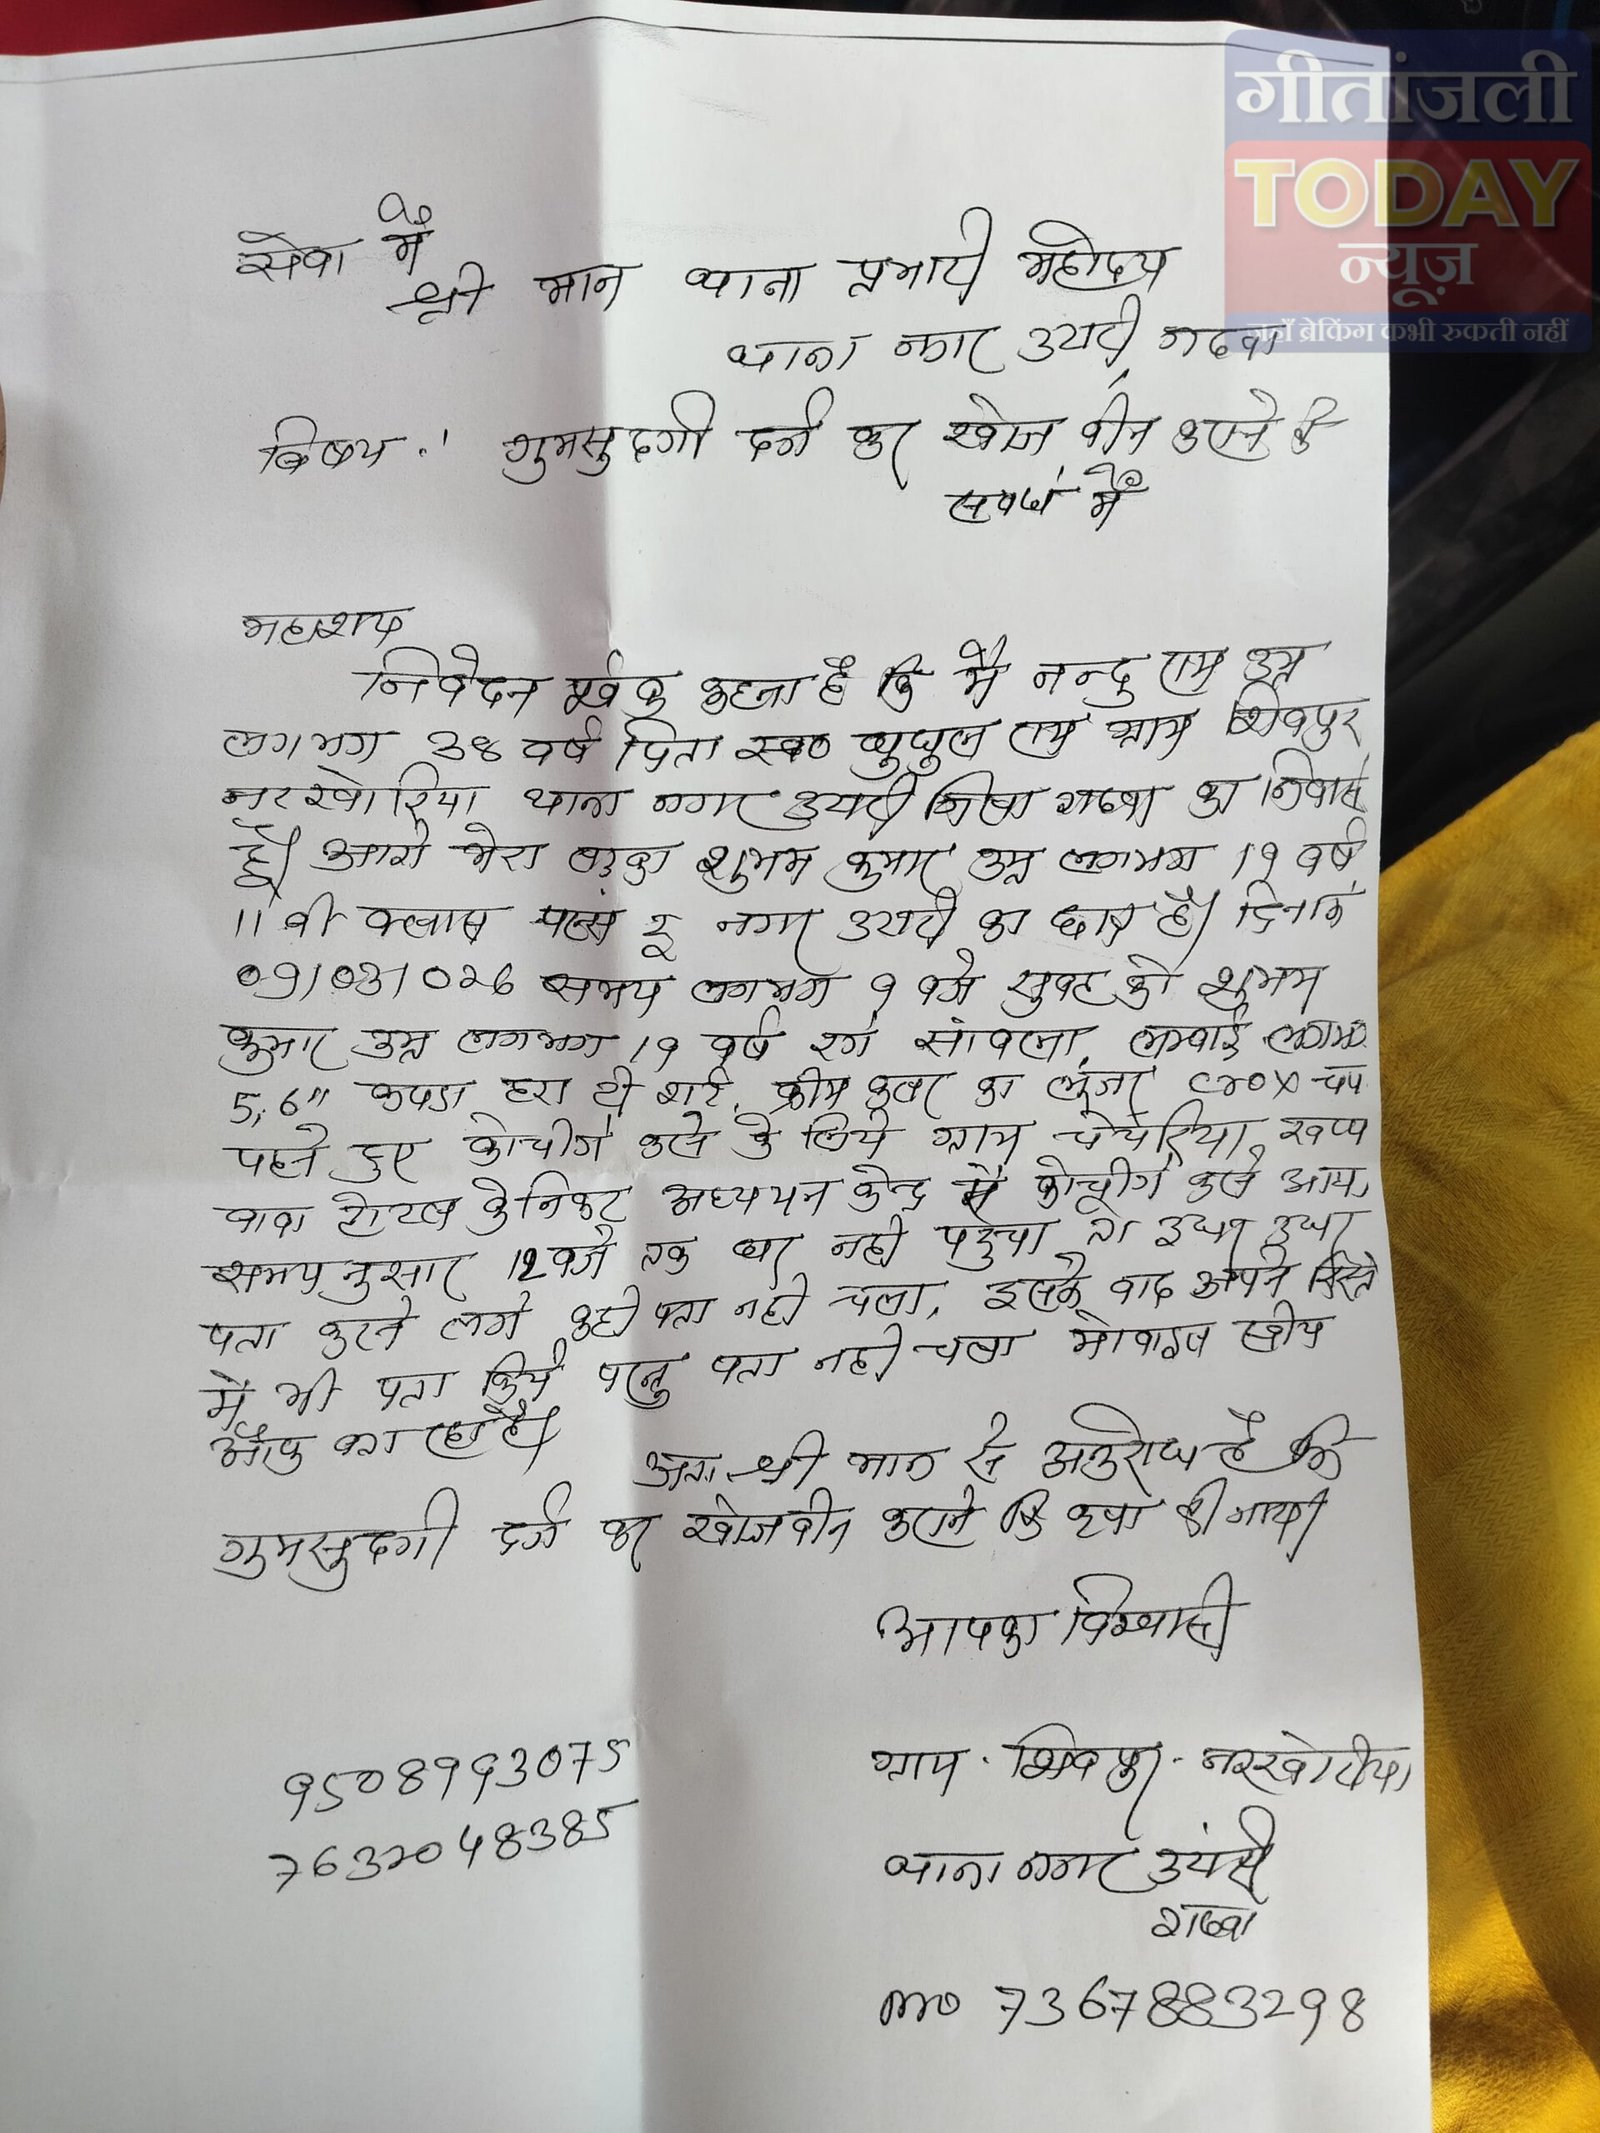 गीतांजली
TODAY
न्यूज़
जहाँ ब्रेकिंग कभी रुकती नहीं
सेवा में
श्री मान थाना प्रभारी महोदय
थाना नगर उटारी, गढवा
बिषय :' गुमसुदगी दर्ज कर खोज बीन करने कि
सबधं में
महाशय
निवेदन पूर्वक कहना है कि मै नन्दु राम उम्र
लगभग 38 वर्ष पिता स्व० राम ग्राम शिवपुर
नरखोरिया थाना नगर उटारी जिला गढवा का निवासी
हूँ। आगे मेरा लडका शुभम कुमार उम्र लगभग 19 वर्ष
11 वी क्लास पल्स टू नगर उटारी का छात्र है। दिनाकं
09/03/026 समय लगभग 9 बजे सुबह को शुभम
कुमार उम्र लगभग 19 वर्ष रगं सांवला, लम्बाई लगभग
5,6" कपडा हरा टी शर्ट, क्रीम कलर का
पहने हुए कोचीगं करने के लिये ग्राम
होटल के निकट अध्ययन केन्द्र में कोचीगं करने
समय नुसार 12 बजे तक घर नही पहुचा तो इधर उधर
पता करने लगे कही पता नही चला, इसके बाद अपने रिस्ते
में भी पता किये परन्तु पता नही चला मोबाइल स्वीच
ऑफ बता रहा है।
अतः श्री मान से अनुरोध है कि
गुमसुदगी दर्ज कर खोजबीन करने कि कृपा की जाय।
आपका विश्वासी
ग्राम - शिवपुर - नरखोरीया
थाना नगर उटारी
गढवा
mo 7367883298
9508993075
7632048385